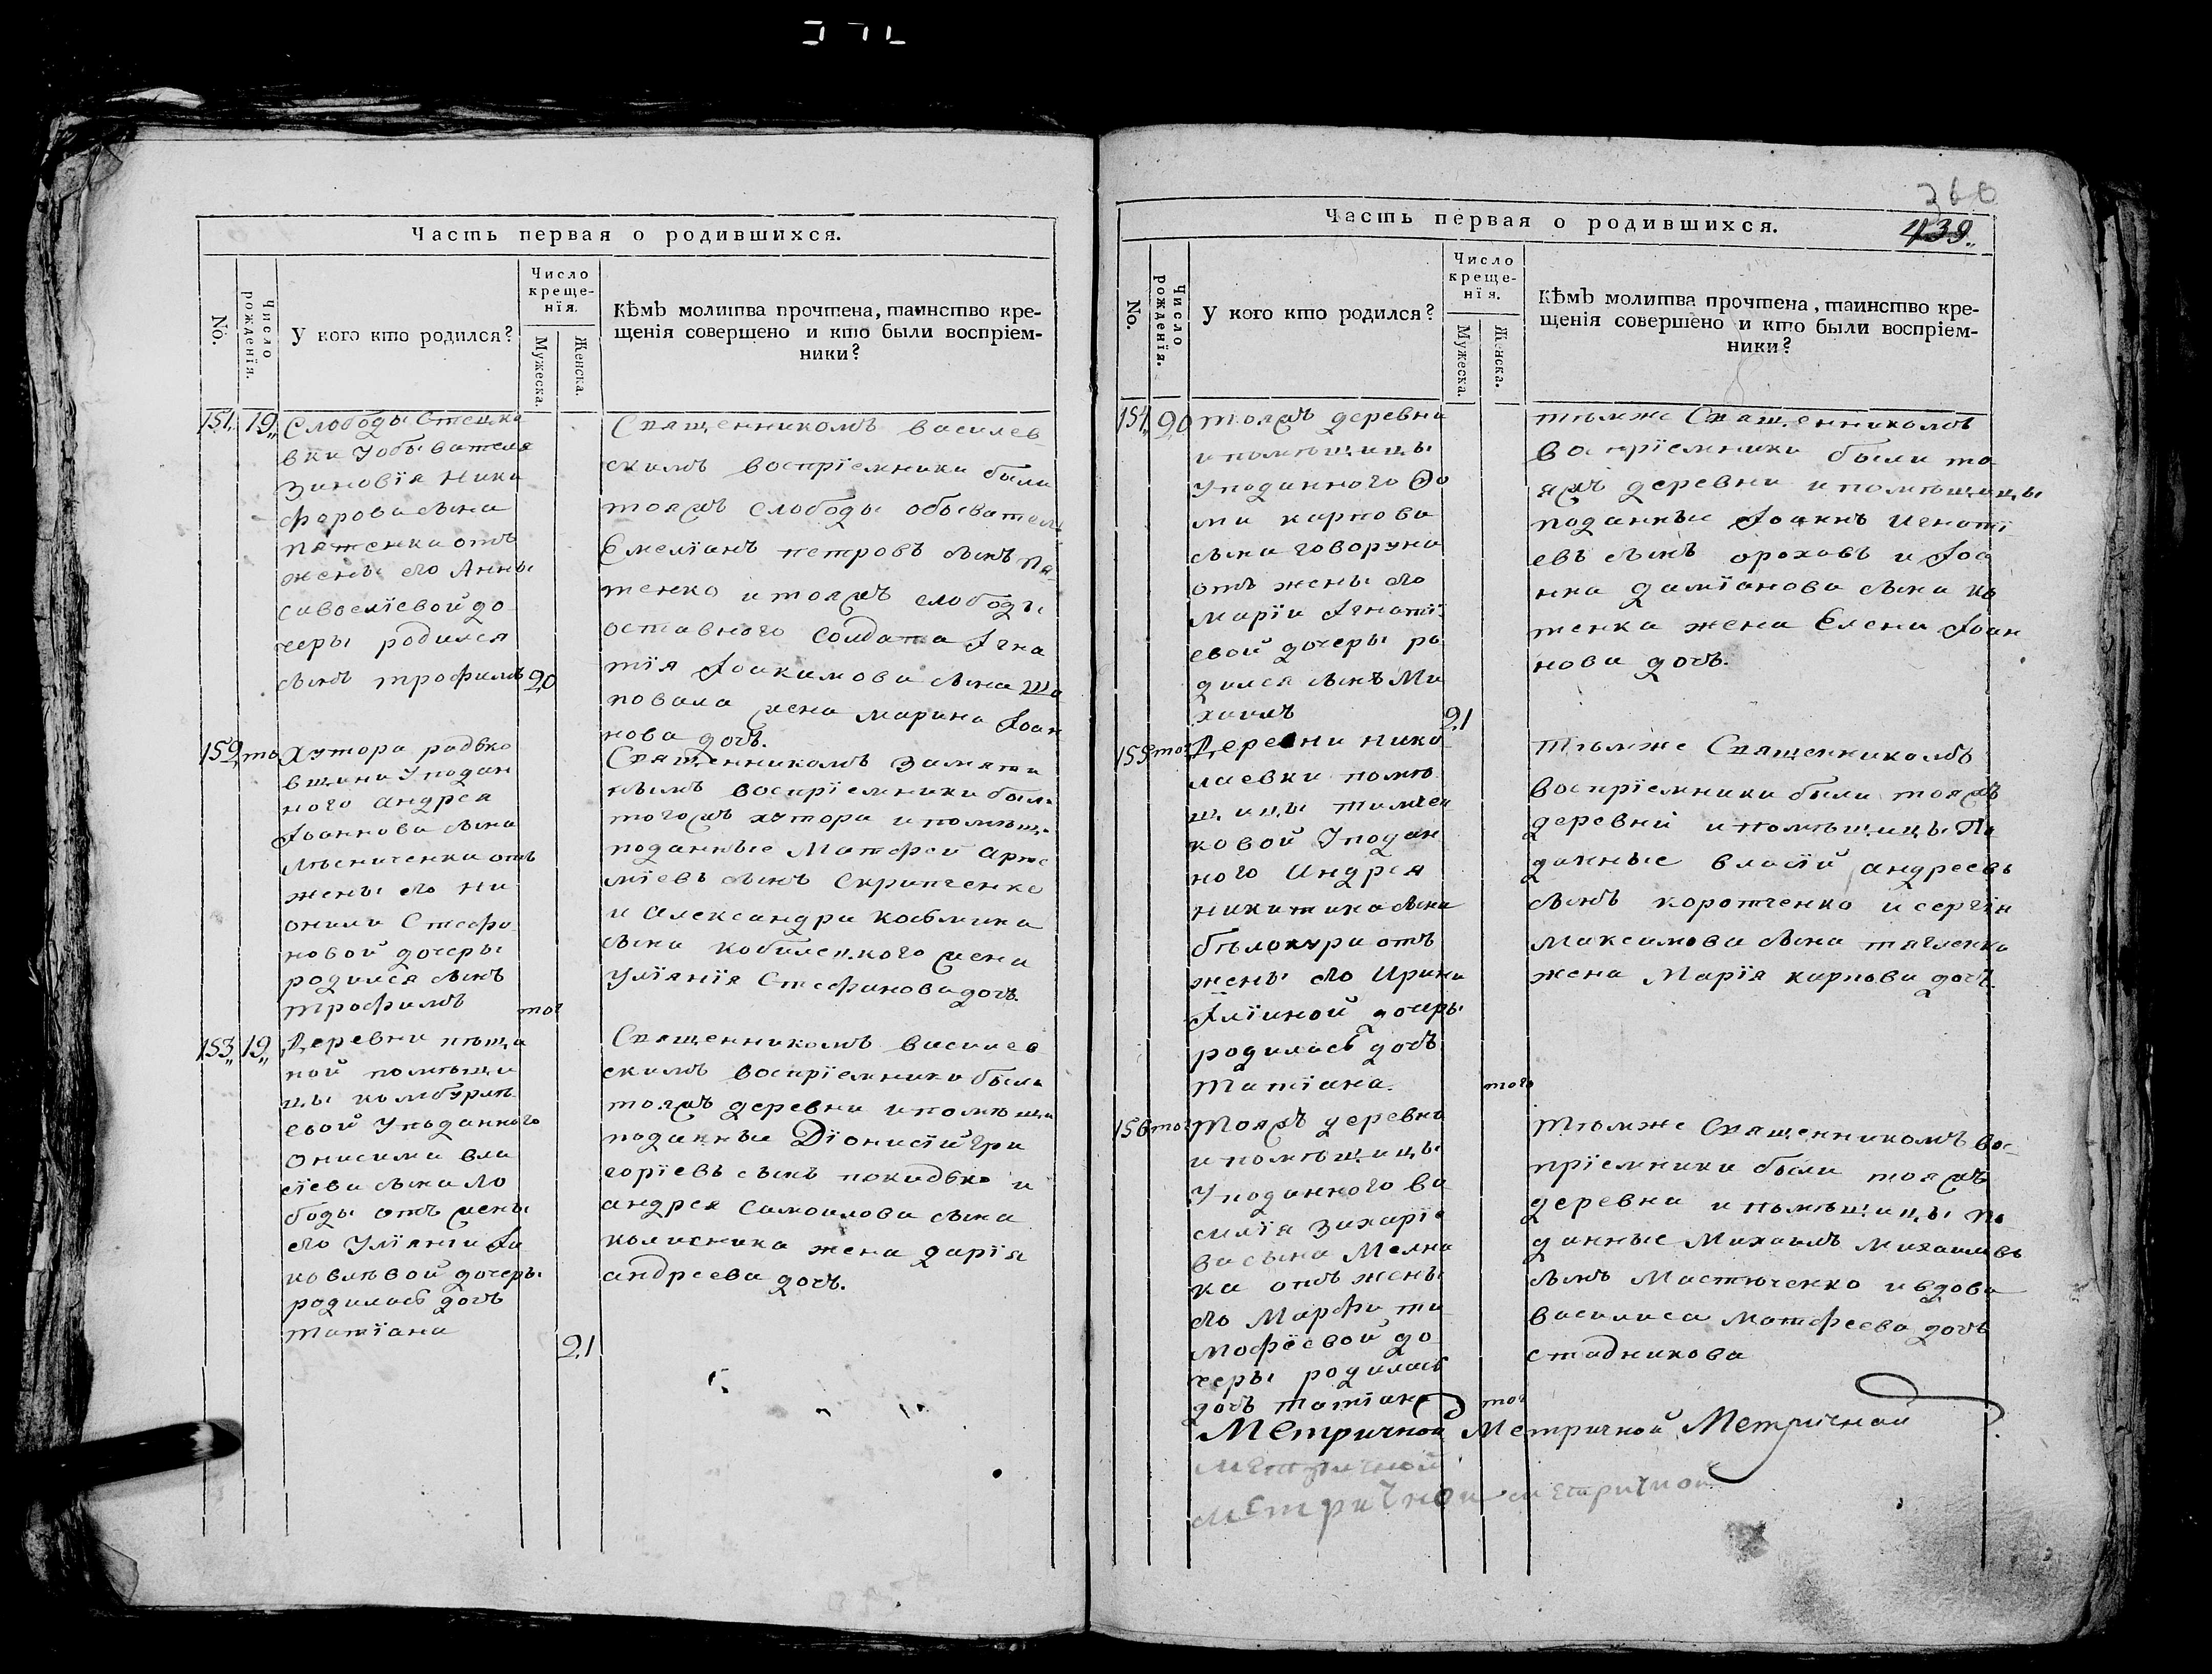 Часть первая о родившихся.
No.
Число рожденія.
У кого кто родился?
Число
креще-
нія.
Мужеска.
Женска.
Кѣмъ молитва прочтена, таинство кре-
щенія совершено и кто были воспріем-
ники?
151, 19,, Слободы Стецко
вки Уобывателя
Зиновія Ники
форова сына
пятенка отъ
жены его Анны
савоеліевой до
черы родился
сынъ трофимъ 20
Священникомъ василев
скимъ воспріемники были
тояжъ слободы обыватели
Емеліанъ петровъ сынъ пя-
тенко и тояжъ слободы
оставного солдата Iгна
тія Iоакимова сына Ша
повала жена марина Iоан
нова дочь.
152, то Хутора радько
вщини Уподан
ного андрея
Iоаннова сына
жены его Ни
онили Стефа
новой дочеры
родился сынъ
трофимъ тог
Священникомъ
воспріемники были
тогожъ хутора и помѣщ.
поданные Матфей арте
міевъ сынъ Скрипченко
и александра косьмина
сына жена
Уліянія Стефанова дочь.
153,, 19,, Деревни пѣща
ной помѣщи
цы камбурле
евой Уподанного
Онисима вла
сіева сына ло
боды отъ жены
его Уліянии Iа
ковлѣвой дочеры
родилась дочь
татіана 21
Священникомъ василев
скимъ воспріемники были
тояжъ деревни и помѣщи
поданные Діонисій гри
горіевъ сынъ покидько и
андрея самоилова сына
колисника жена дарія
андреева дочь.
360
Часть первая о родившихся.
439.
No.
Число рожденія.
У кого кто родился?
Число
креще-
нія.
Мужеска.
Женска.
Кѣмъ молитва прочтена, таинство кре-
щенія совершено и кто были воспріем-
ники?
154, 20 тояжъ деревни
и помѣщицы
Уподанного Ѳо
ми карпова
сына говоруна
отъ жены его
маріи Iгнаті
евой дочеры ро
дился сынъ Ми
хаилъ 21
тѣмже Священникомъ
воспріемники были то
яжъ деревни и помѣщицы
поданные Iоаннъ игнаті
евъ сынъ ороховъ и Iоа
нна даміанова сына
тенка жена Елена Iоан
нова дочь.
155 тог Деревни нико
лаевки помѣ
щицы тимчен
ковой Уподан
ного андрея
никитина сына
бѣлокура отъ
жены его Ирини
Iліиной дочеры
родилась дочь
татіана. того
тѣмже Священникомъ
воспріемники были тояжъ
деревни и помѣщицы По
данные власій андреевъ
сынъ коротченко и сергія
Максимова сына
жена Марія карпова дочь.
156 тог тояжъ деревни
и помѣщицы
Уподанного ва
силія Захаріе
ва сына Мелни
ка отъ жены
его Марфи ти
мофѣевой до
черы родилась
дочь татіана тог
тѣмже Священникомъ вос-
пріемники были тояжъ
деревни и помѣщицы по
данные Михаилъ Михаиловъ
сынъ Мастюченко и вдова
василиса матфеева дочь
стадникова
Метричной Метричной Метричной
метричной
метричной метричной